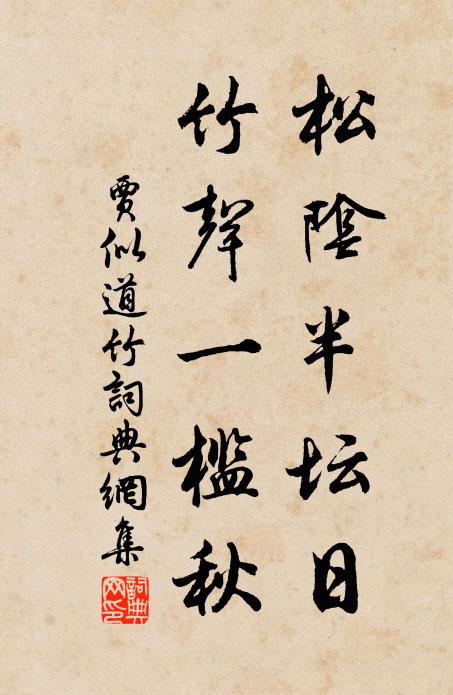 松陰半坛日
竹聲一檻秋
賈似道竹詞典網集
詞典網印